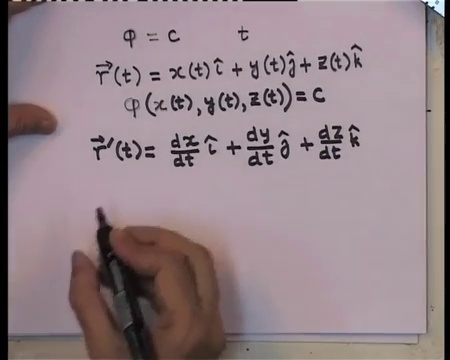 φ = c t
r⃗(t) = x(t)î + y(t)ĵ + z(t)k̂
φ(x(t), y(t), z(t)) = c
r⃗'(t) = dx/dt î + dy/dt ĵ + dz/dt k̂